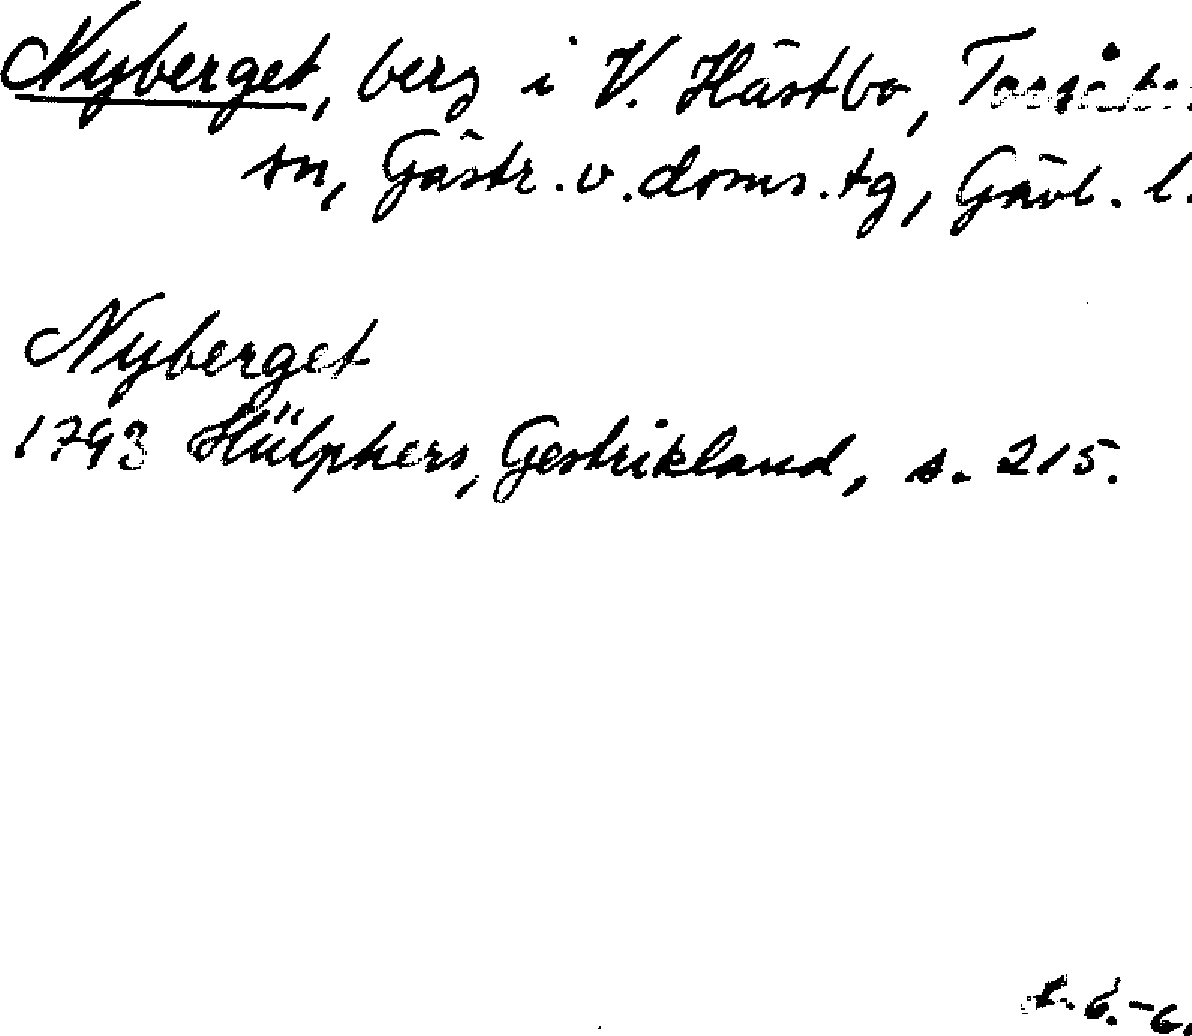 Nyberget, berg i V. Hästbo, Torsåker
sn, Gästr. v. doms. tg, Gävl. l.
Nyberget
1793 Hülphers, Gestrikland, s. 215.